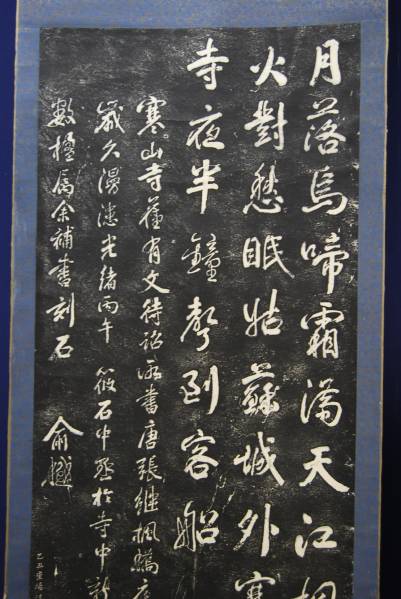 月落烏啼霜滿天江楓
火對愁眠姑蘇城外寒
寺夜半鐘聲到客船
寒山寺舊有文待詔所書唐張繼楓橋夜
歲久漫漶光緒丙午筱石中丞於寺中新
數楹屬余補書刻石
俞樾